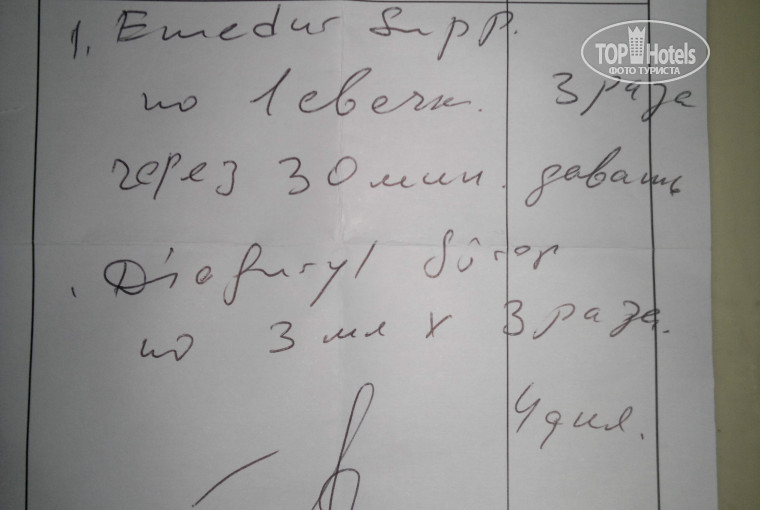 TOP Hotels
ФОТО ТУРИСТА
1. Emedur Supp.
по 1 свечк. 3 раза
через 30 мин. давать
. Diafuryl Şürop
по 3 мл x 3 раза.
4 дня.